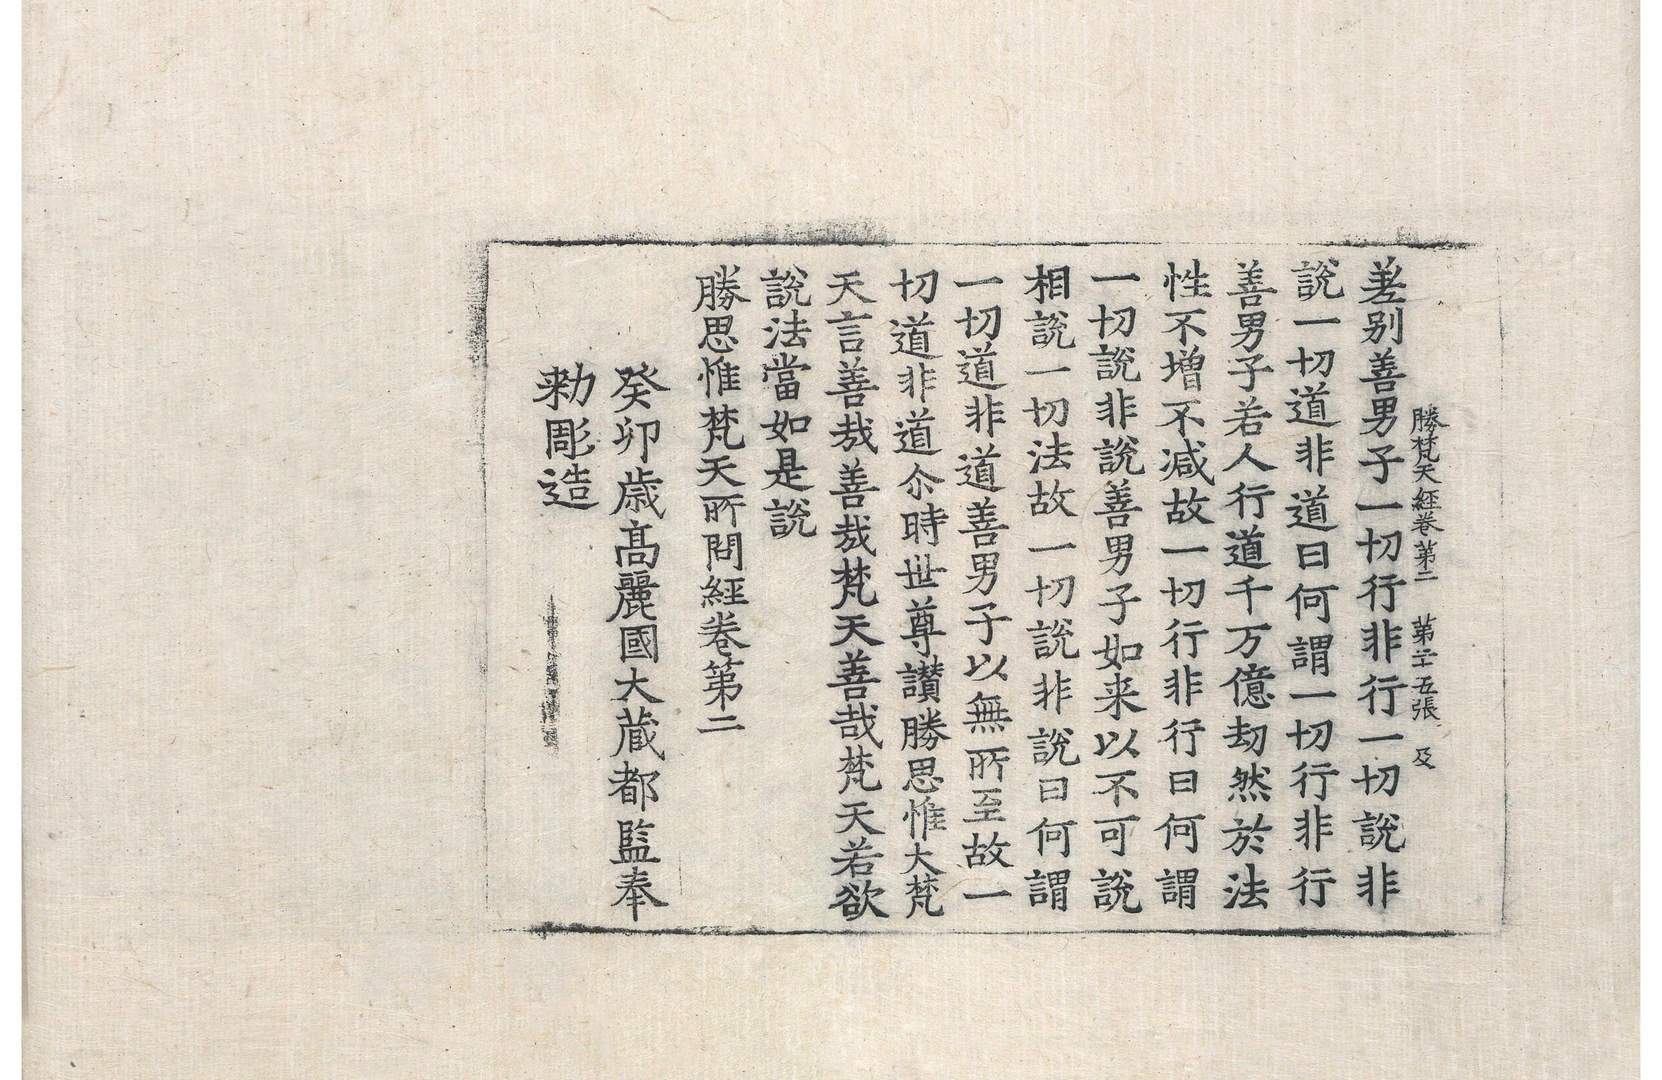 勝梵天經卷第二　第二十五張　及
差别善男子一切行非行一切說非
說一切道非道曰何謂一切行非行
善男子若人行道千万億劫然於法
性不增不減故一切行非行曰何謂
一切說非說善男子如来以不可說
相說一切法故一切說非說曰何謂
一切道非道善男子以無所至故一
切道非道尒時世尊讃勝思惟大梵
天言善哉善哉梵天善哉梵天若欲
說法當如是說
勝思惟梵天所問經卷第二
癸卯歳髙麗國大蔵都監奉
勑彫造